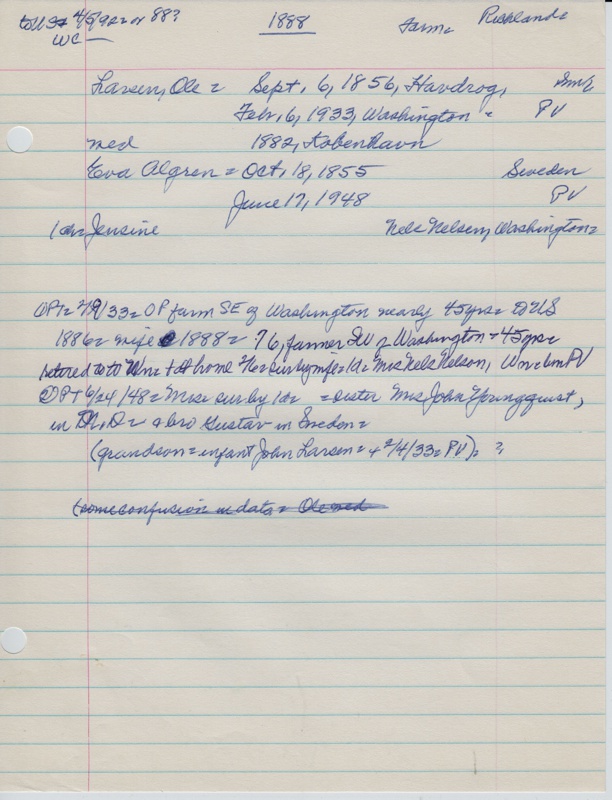 to US 4/5/92 or 88?
1888
Farm= Richland=
WC —
Larsen, Ole = Sept. 6, 1856, Havdrog,
Febr. 6, 1933, Washington = PV
med 1882, Kobenhavn
Eva Algren = Oct. 18, 1855 Sweden
June 17, 1948 PV
1 da= Jensine Nels Nelsen, Washington=
OPt= 2/9/33= OP farm SE of Washington nearly 45yrs= to US
1886= wife 1888= 76, farmer SW of Washington + 45yrs=
retored to to Wn= + at home He= sur by wife= 1da= Mrs Nels Nelson, Wn= bm PV
OPt 6/24/48= Mrs= sur by 1da = sister Mrs John Youngquist,
in N.D= a bro Gustav in Sweden=
(grandson= infant John Larsen= + 2/4/33= PV). ?
(some confusion in data = Ole med